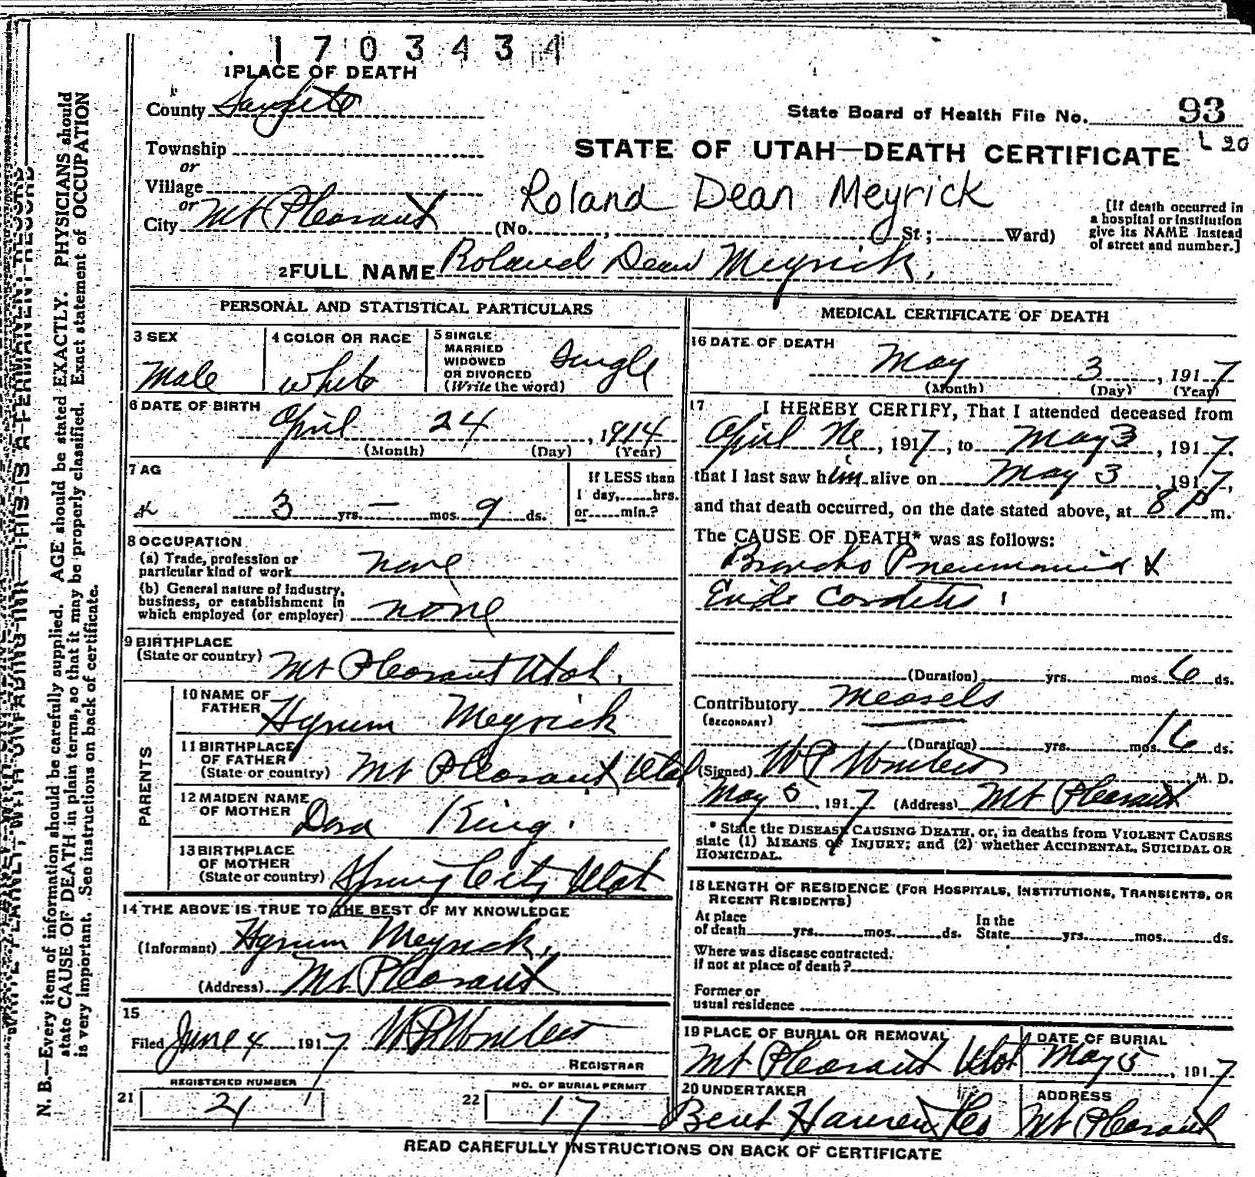 1703434
1 PLACE OF DEATH
County Sanpete
State Board of Health File No. 93
20
Township
or
Village
or
City Mt Pleasant
STATE OF UTAH—DEATH CERTIFICATE
Roland Dean Meyrick
(No. , St; Ward)
[If death occurred in
a hospital or institution
give its NAME instead
of street and number.]
2 FULL NAME Roland Dean Meyrick.
PERSONAL AND STATISTICAL PARTICULARS
3 SEX
Male
4 COLOR OR RACE
white
5 SINGLE
MARRIED
WIDOWED
OR DIVORCED
(Write the word)
Single
6 DATE OF BIRTH
April 24, 1914
(Month) (Day) (Year)
7 AG
3 yrs. — mos. 9 ds.
If LESS than
1 day, hrs.
or min.?
8 OCCUPATION
(a) Trade, profession or
particular kind of work none
(b) General nature of industry,
business, or establishment in
which employed (or employer) none
9 BIRTHPLACE
(State or country) Mt Pleasant Utah.
PARENTS
10 NAME OF
FATHER Hyrum Meyrick
11 BIRTHPLACE
OF FATHER
(State or country) Mt Pleasant Utah
12 MAIDEN NAME
OF MOTHER Dora King.
13 BIRTHPLACE
OF MOTHER
(State or country) Spring City Utah
14 THE ABOVE IS TRUE TO THE BEST OF MY KNOWLEDGE
(Informant) Hyrum Meyrick,
(Address) Mt Pleasant
15
Filed June 4 1917
REGISTRAR
21 REGISTERED NUMBER
21
22 NO. OF BURIAL PERMIT
17
MEDICAL CERTIFICATE OF DEATH
16 DATE OF DEATH
May 3, 1917
(Month) (Day) (Year)
17 I HEREBY CERTIFY, That I attended deceased from
April, 1917, to May 3, 1917.
that I last saw him alive on May 3, 1917,
and that death occurred, on the date stated above, at 8 P m.
The CAUSE OF DEATH* was as follows:
Broncho Pneumonia &
Endo Cordetis
(Duration) yrs. mos. 6 ds.
Contributory Measels
(SECONDARY)
(Duration) yrs. mos. 16 ds.
(Signed) M. D.
May 5, 1917 (Address) Mt Pleasant
* State the DISEASE CAUSING DEATH, or, in deaths from VIOLENT CAUSES
state (1) MEANS OF INJURY; and (2) whether ACCIDENTAL, SUICIDAL OR
HOMICIDAL.
18 LENGTH OF RESIDENCE (FOR HOSPITALS, INSTITUTIONS, TRANSIENTS, OR
RECENT RESIDENTS)
At place
of death yrs. mos. ds.
In the
State yrs. mos. ds.
Where was disease contracted.
if not at place of death?
Former or
usual residence
19 PLACE OF BURIAL OR REMOVAL
Mt Pleasant Utah
DATE OF BURIAL
May 5, 1917
20 UNDERTAKER
Bent Hansen
ADDRESS
Mt Pleasant
READ CAREFULLY INSTRUCTIONS ON BACK OF CERTIFICATE
WRITE PLAINLY, WITH UNFADING INK—THIS IS A PERMANENT RECORD
N. B.—Every item of information should be carefully supplied. AGE should be stated EXACTLY. PHYSICIANS should
state CAUSE OF DEATH in plain terms, so that it may be properly classified. Exact statement of OCCUPATION
is very important. See instructions on back of certificate.